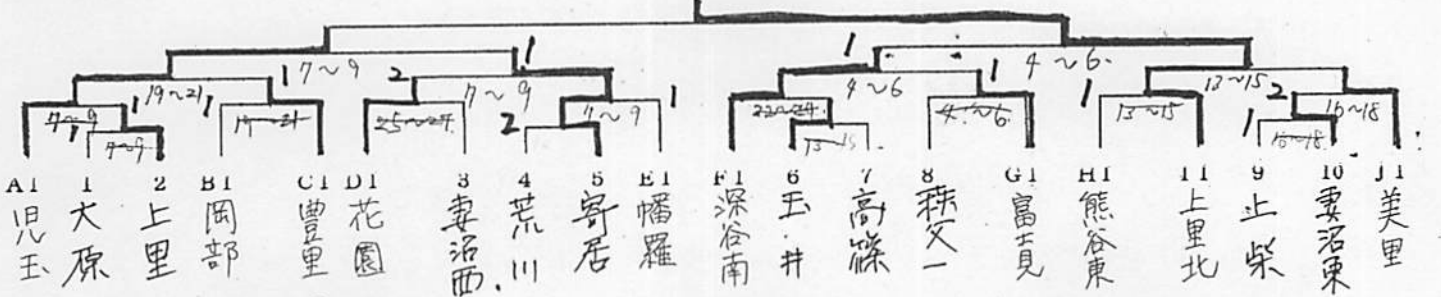 1 1
7～9 2 4～6
1 19～21 1 7～9 4～6 1 13～15 2
7～9 1 19～21 25～27 2 7～9 1 22～24 4～6 1 13～15 1 16～18
7～9 13～15 16～18
A1 1 2 B1 C1 D1 3 4 5 E1 F1 6 7 8 G1 H1 11 9 10 J1
児玉 大原 上里 岡部 豊里 花園 妻沼西 荒川 寄居 幡羅 深谷南 玉井 高篠 秩父一 富士見 熊谷東 上里北 上柴 妻沼東 美里